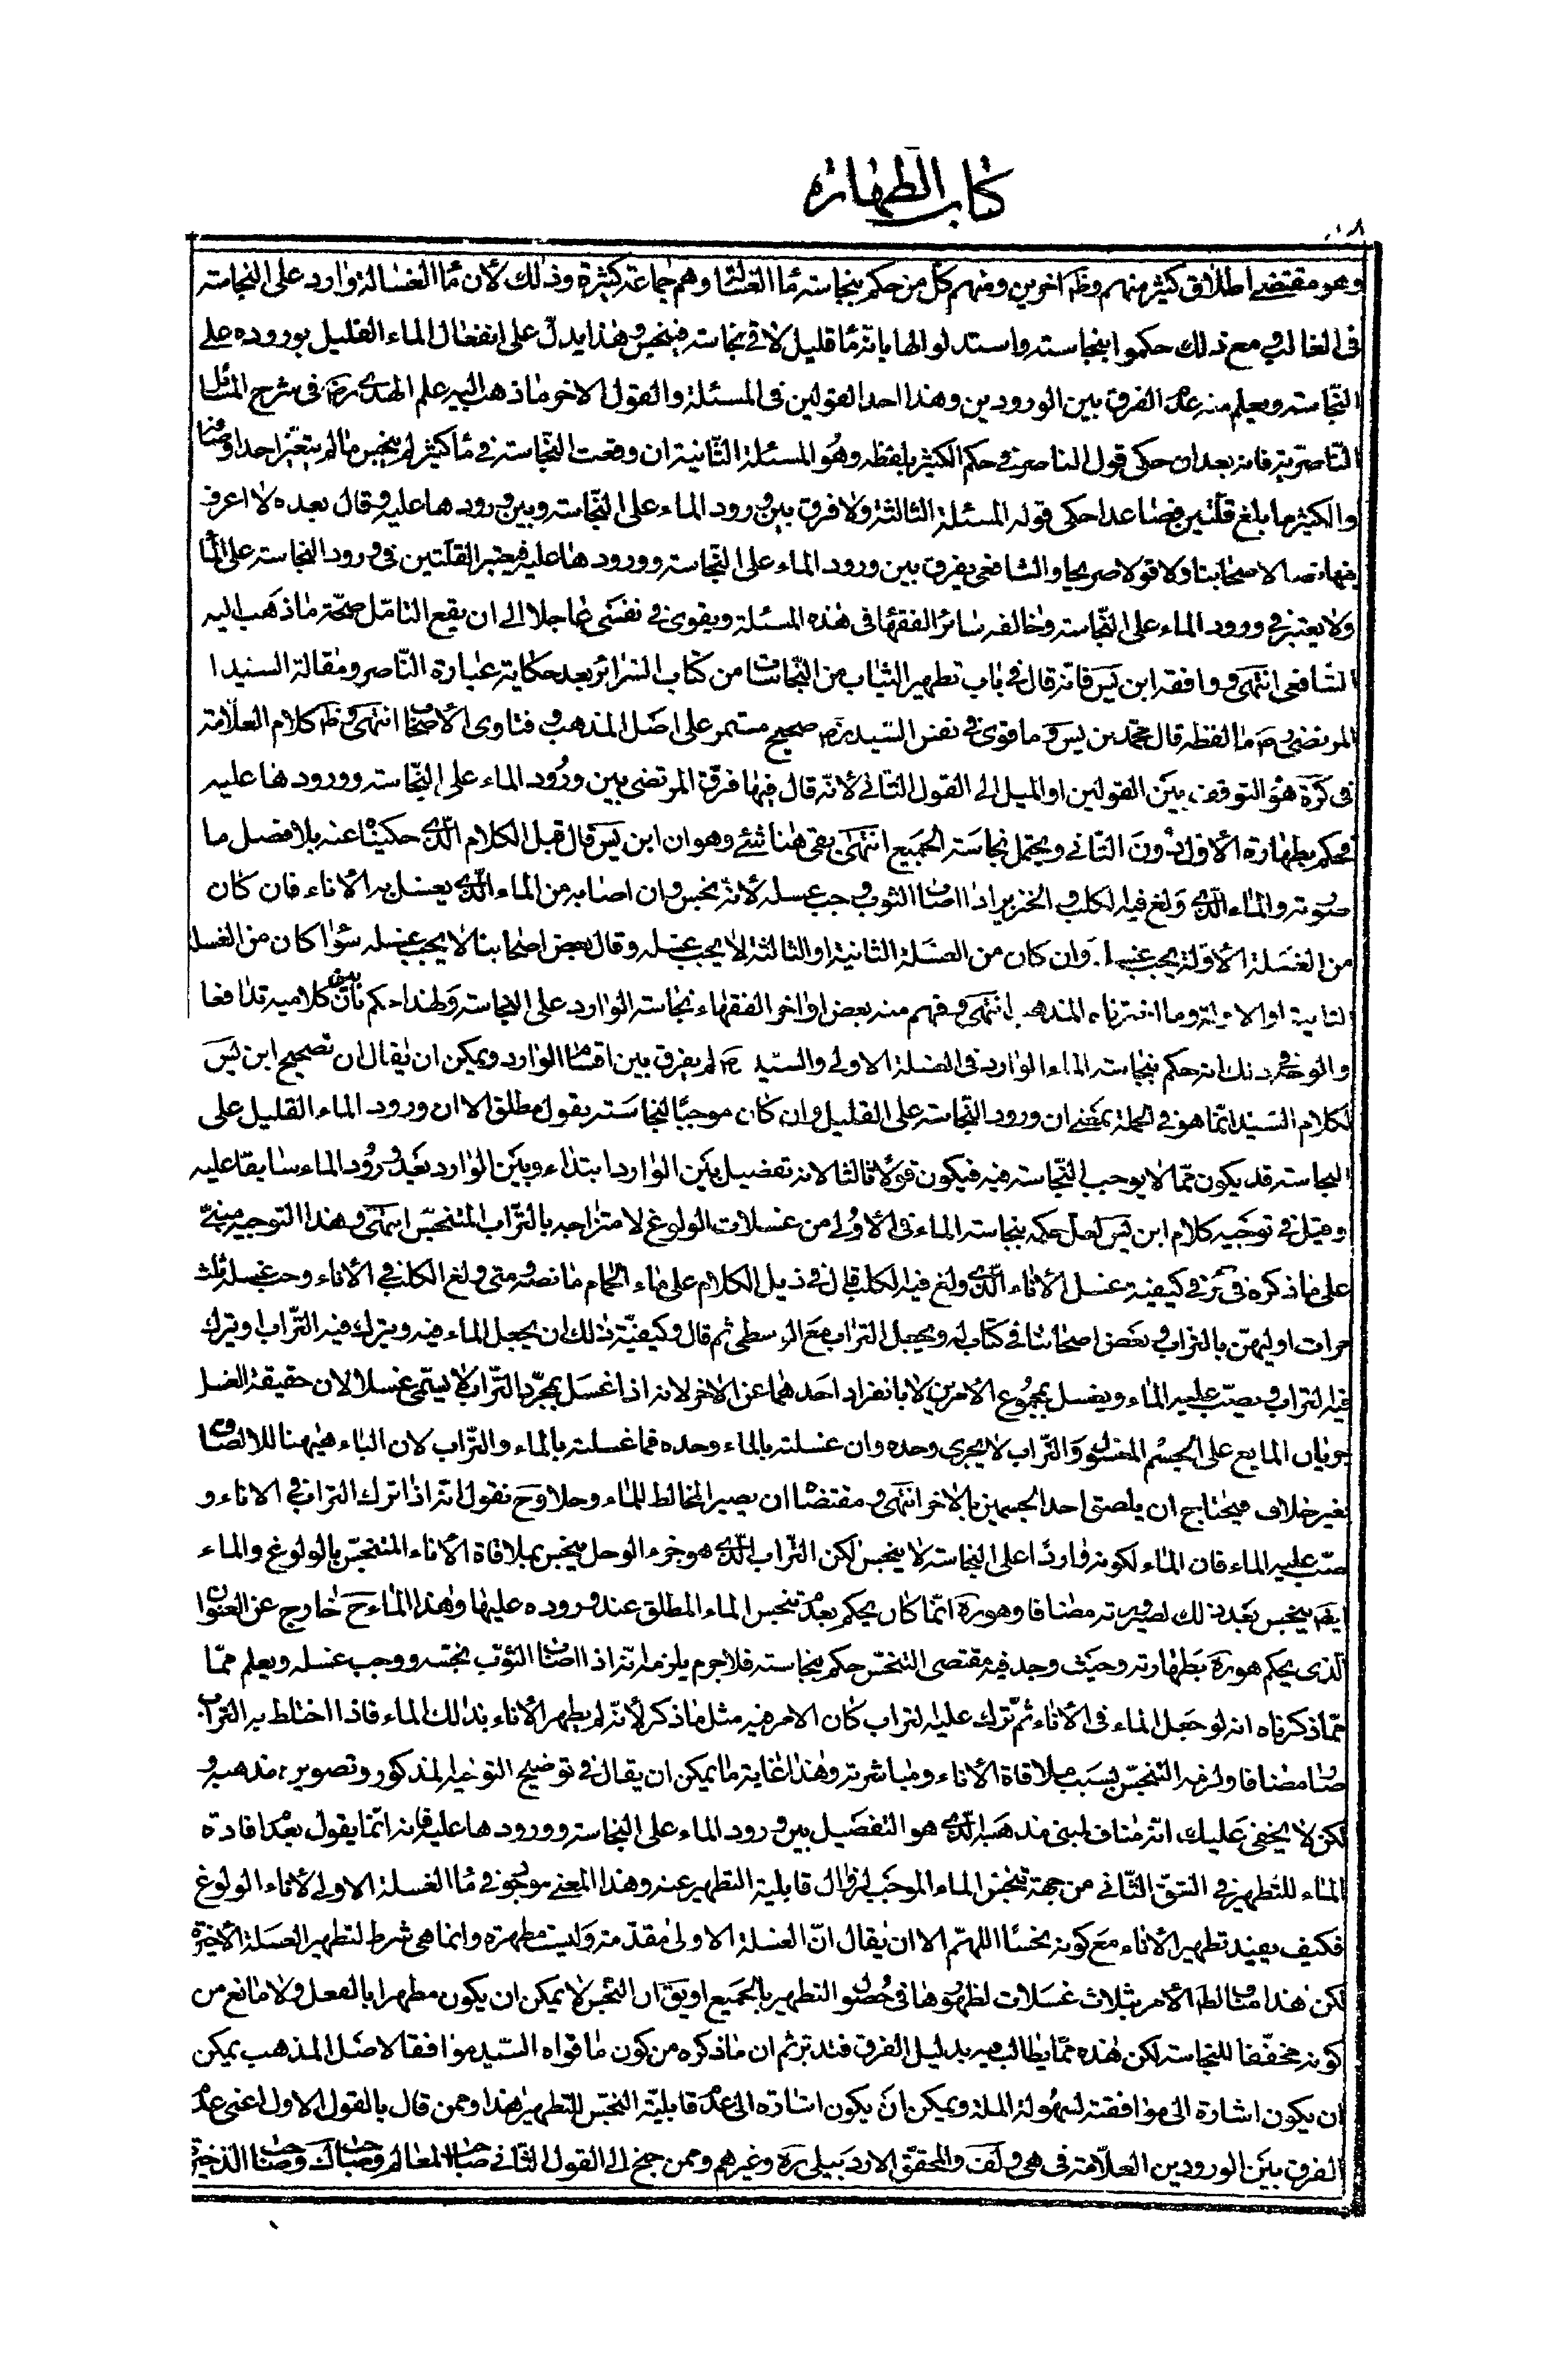 كتاب الطهارة
١٠٨
وهو مقتضى اطلاق كثير منهم وظ اخرين ومنهم كل من حكم بنجاسة ماء الغسالة وهم جماعة كثيرة وذلك لأن ماء الغسالة وارد على النجاسة
فى الغالب ومع ذلك حكموا بنجاسته واستدلوا لها بانه ماء قليل لاقى نجاسة فينجس وهذا يدل على انفعال الماء القليل بوروده على
النجاسة ويعلم منه عدم الفرق بين الورودين وهذا احد القولين فى المسئلة والقول الاخر ما ذهب اليه علم الهدى ره فى شرح المسائل
الناصرية فانه بعد ان حكى قول الناصر فى حكم الكثير بلفظه وهو المسئلة الثانية ان وقعت النجاسة فى ماء كثير لم ينجس ما لم يتغير احد اوصافه
والكثير ما بلغ قلتين فصاعدا حكى قوله المسئلة الثالثة ولا فرق بين ورود الماء على النجاسة وبين ورودها عليه وقال بعده لا اعرف
فيها نصا لاصحابنا ولا قولا صريحا والشافعى يفرق بين ورود الماء على النجاسة وورودها عليه فيعتبر القلتين فى ورود النجاسة على الماء
ولا يعتبر فى ورود الماء على النجاسة وخالفه سائر الفقهاء فى هذه المسئلة ويقوى فى نفسى عاجلا الى ان يقع التامل صحة ما ذهب اليه
الشافعى انتهى ووافقه ابن يس فانه قال فى باب تطهير الثياب من النجاسات من كتاب السرائر بعد حكاية عبارة الناصر ومقالة السيد ا
المرتضى ره ما لفظه قال محمد بن يس وما قوى فى نفس السيد ره صحيح مستمر على اصل المذهب وفتاوى الأصحاب انتهى وظ كلام العلامة
فى كرة هو التوقف بين القولين او الميل الى القول الثانى لأنه قال فيها فرق المرتضى بين ورود الماء على النجاسة وورودها عليه
فحكم بطهارة الأول دون الثانى ويحتمل نجاسة الجميع انتهى بقى هنا شئ وهو ان ابن يس قال قبل الكلام الذى حكيناه عنه بلا فصل ما
صورته والماء الذى ولغ فيه الكلب والخنزير اذا اصاب الثوب وجب غسله لأنه نجس وان اصابه من الماء الذى يغسل به الأناء فان كان
من الغسلة الأولة يجب غسله وان كان من الغسلة الثانية او الثالثة لا يجب غسله وقال بعض اصحابنا لا يجب غسله سواء كان من الغسلة
الثانية او الاولة وما اخترناه المذهب انتهى وفهم منه بعض اواخر الفقهاء نجاسة الوارد على النجاسة ولهذا حكم بان بين كلاميه تدافعا
والوجه فى ذلك انه حكم بنجاسة الماء الوارد فى الغسلة الاولى والسيد ره لم يفرق بين اقسام الوارد ويمكن ان يقال ان تصحيح ابن يس
لكلام السيد انما هو فى الجملة بمعنى ان ورود النجاسة على القليل وان كان موجبا لنجاسته بقول مطلق الا ان ورود الماء القليل على
النجاسة قد يكون مما لا يوجب النجاسة فيه فيكون قولا ثالثا لانه تفصيل بين الوارد ابتداء وبين الوارد بعد ورود الماء سابقا عليه
وقيل فى توجيه كلام ابن يس لعل حكمه بنجاسة الماء فى الأولى من غسلات الولوغ لامتزاجه بالتراب المتنجس انتهى وهذا التوجيه مبنى
على ما ذكره فى ئر فى كيفية غسل الأناء الذى ولغ فيه الكلب قال فى ذيل الكلام على ماء الحمام ما نصه ومتى ولغ الكلب فى الأناء وجب غسله ثلث
مرات اوليهن بالتراب وبعض اصحابنا فى كتاب له ويجعل التراب مع الوسطى ثم قال وكيفية ذلك ان يجعل الماء فيه ويترك فيه التراب او يترك
فيه التراب ويصب عليه الماء ويغسل بمجموع الأمرين لا بانفراد احدهما عن الاخر لانه اذا غسل بمجرد التراب لا يسمى غسلا لان حقيقة الغسل
جريان المايع على الجسم المغسول والتراب لا يجرى وحده وان غسلته بالماء وحده فما غسلته بالماء والتراب لان الباء ههنا للالصاق
بغير خلاف فيحتاج ان يلصق احد الجسمين بالاخر انتهى ومقتضاه ان يصير المخالط للماء وحلا وح نقول انه اذا ترك التراب فى الاناء و
صب عليه الماء فان الماء لكونه واردا على النجاسة لا ينجس لكن التراب الذى هو جزء الوحل ينجس بملاقاة الأناء المتنجس بالولوغ والماء
ايضا ينجس بعد ذلك لصيرورته مضافا وهو ره انما كان يحكم بعدم تنجس الماء المطلق عند وروده عليها وهذا الماء ح خارج عن العنوان
الذى يحكم هو ره بطهارته وحيث وجد فيه مقتضى التنجس حكم بنجاسته فلا جرم يلزمه انه اذا اصاب الثوب نجسه ووجب غسله ويعلم مما
مما ذكرناه انه لو جعل الماء فى الأناء ثم ترك عليه التراب كان الامر فيه مثل ما ذكر لأنه لم يطهر الأناء بذلك الماء فاذا اختلط به التراب
صار مضافا ولزمه التنجس بسبب ملاقاة الأناء ومباشرته وهذا غاية ما يمكن ان يقال فى توضيح التوجيه المذكور وتصويره مذهبه و
لكن لا يخفى عليك انه مناف لمبنى مذهبه الذى هو التفصيل بين ورود الماء على النجاسة وورودها عليه فانه انما يقول بعدم افادة
الماء للتطهير فى الشق الثانى من جهة تنجس الماء الموجب لزوال قابلية التطهير عنه وهذا المعنى موجود فى ماء الغسلة الاولى لأناء الولوغ
فكيف يفيد تطهير الأناء مع كونه نجسا اللهم الا ان يقال ان الغسلة الاولى مقدمة وليست مطهرة وانما هى شرط لتطهير الغسلة الأخيرة
لكن هذا مناف لظ الأمر بثلاث غسلات لظهورها فى حصول التطهير بالجميع او يق ان النجس لا يمكن ان يكون مطهرا بالفعل ولا مانع من
كونه مخففا للنجاسة لكن هذه مما يطالب فيه بدليل الفرق فتدبر ثم ان ما ذكره من كون ما قواه السيد موافقا لاصل المذهب يمكن
ان يكون اشارة الى موافقته لسهولة الملة ويمكن ان يكون اشارة الى عدم قابلية النجس للتطهير هذا وممن قال بالقول الاول اعنى عدم
الفرق بين الورودين العلامة فى هى ولف والمحقق الاردبيلى ره وغيرهم وممن جنح الى القول الثانى صاحب المعالم وصاحب ك وصاحب الذخيرة